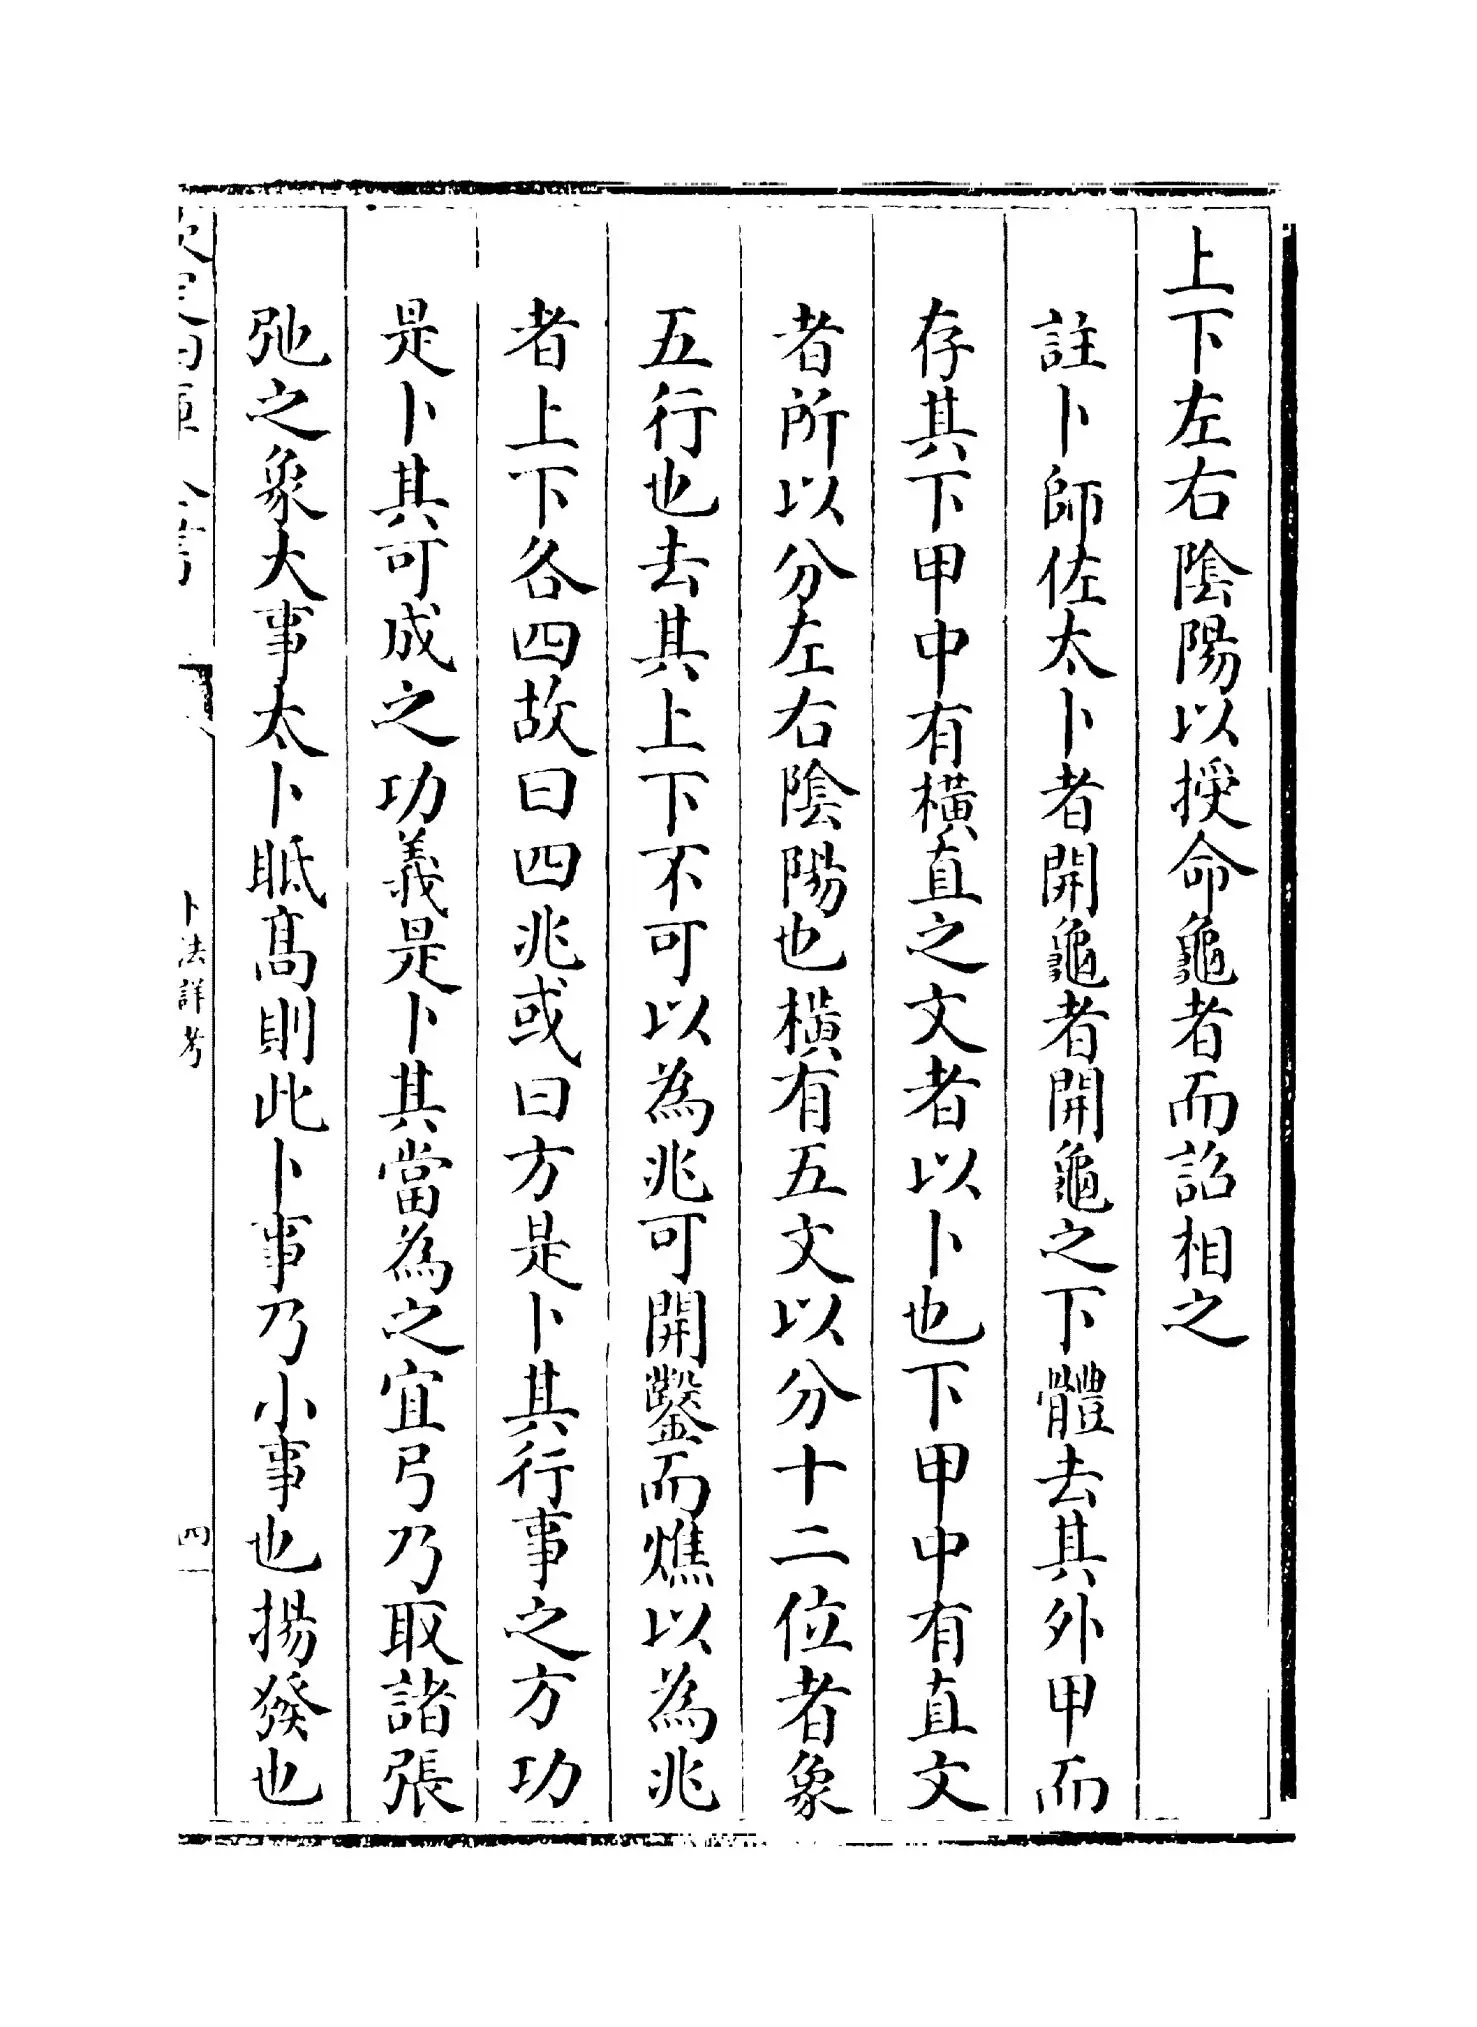 上下左右陰陽以授命龜者而詔相之
註卜師佐太卜者開龜者開龜之下體去其外甲而
存其下甲中有橫直之文者以卜也下甲中有直文
者所以分左右陰陽也橫有五文以分十二位者象
五行也去其上下不可以為兆可開鑿而燋以為兆
者上下各四故曰四兆或曰方是卜其行事之方功
是卜其可成之功義是卜其當為之宜弓乃取諸張
弛之象大事太卜眡高則此卜事乃小事也揚發也
卜法詳考
四